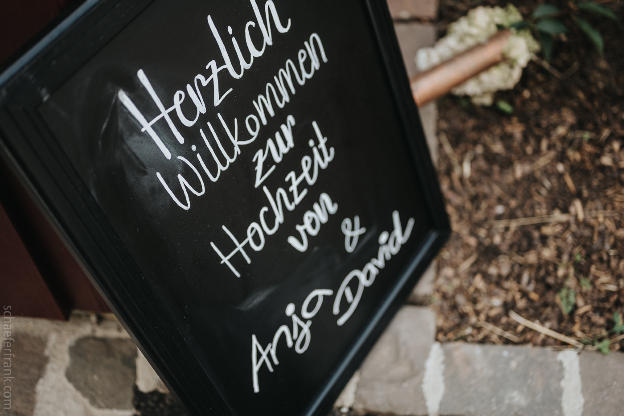 Herzlich
Willkommen
zur
Hochzeit
von
Anja & David
schaeferfrank.com